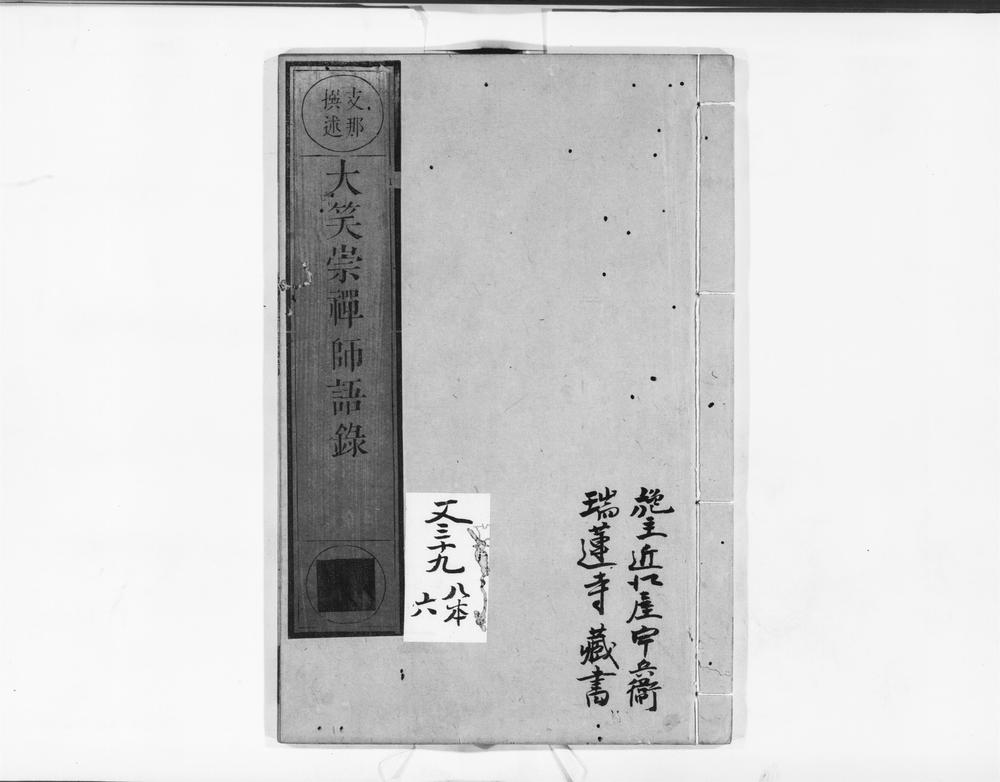 施主近江屋宇兵衞
瑞蓮寺藏書
支那
撰述
大笑崇禪師語錄
三十九
八本
六